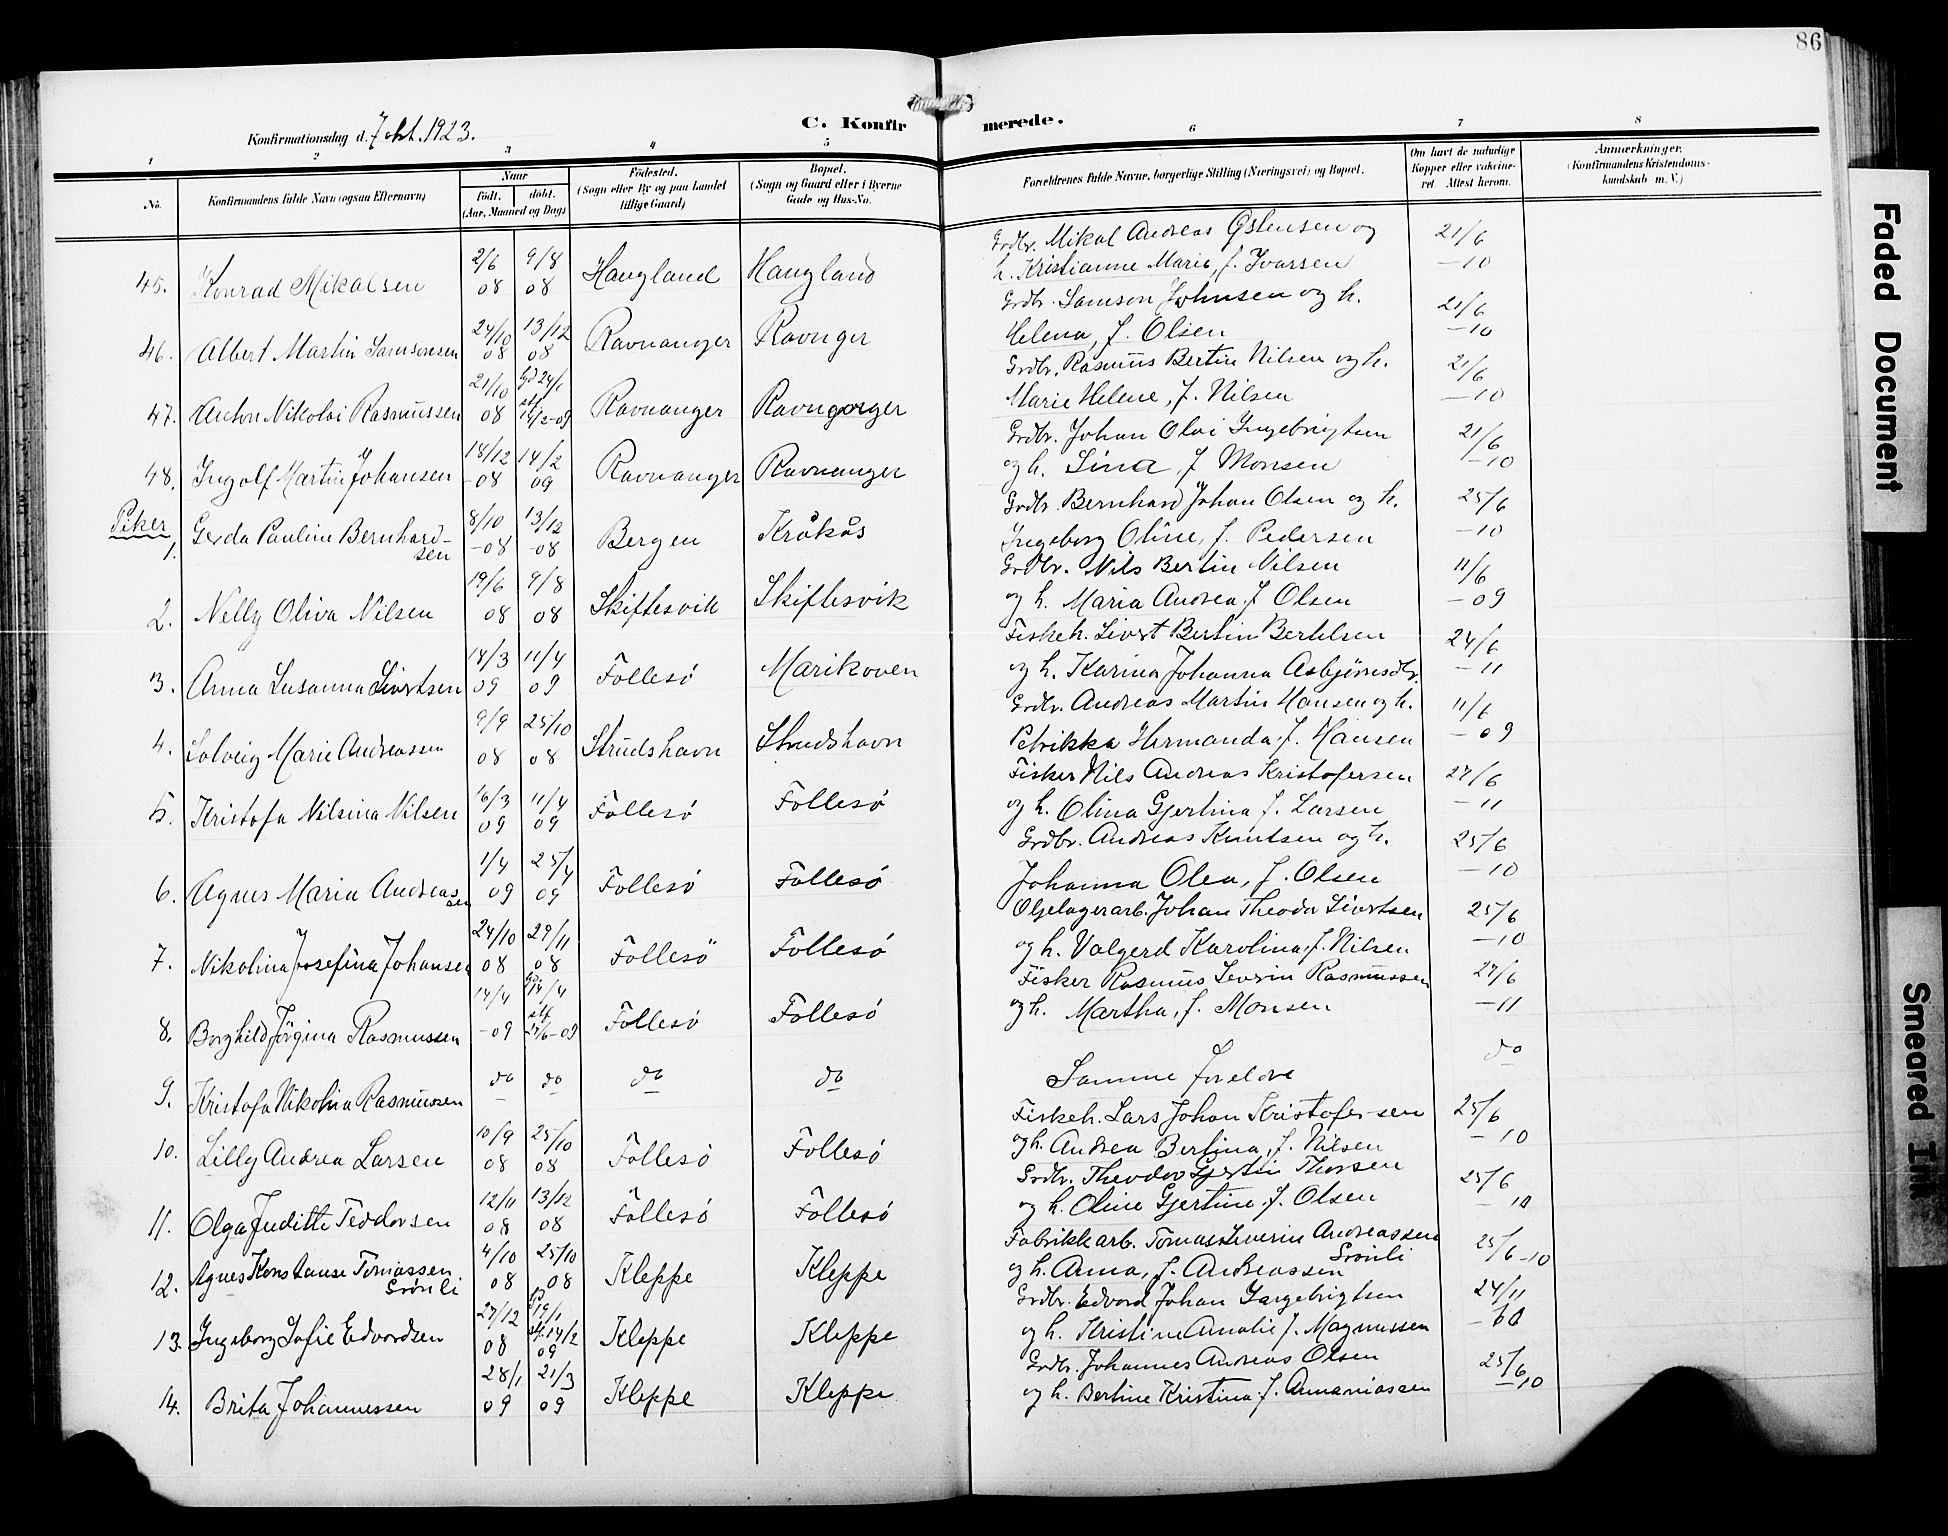 86
Konfirmationsdag d. 7 okt. 1923.
C. Konfirmerede.
1 2 3 4 5 6 7 8
No.
Konfirmandens fulde Navn (ogsaa Efternavn)
Naar
født. døbt.
(Aar, Maaned og Dag)
Fødested.
(Sogn eller By og paa Landet
tillige Gaard)
Bopæl.
(Sogn og Gaard eller i Byerne
Gade og Hus-No.
Forældrenes fulde Navne, borgerlige Stilling (Næringsvei) og Bopæl.
Om havt de naturlige
Kopper eller vaksine-
ret. Attest herom.
Anmærkninger.
(Konfirmandens Kristendoms-
kundskab m. V.)
45. Konrad Mikalsen 2/6 08 9/8 08 Haugland Haugland Grdbr. Mikal Andreas Østensen og
h. Kristianne Marie, f. Ivarsen 21/6 -10
46. Albert Martin Samsonsen 24/10 08 13/12 08 Ravnanger Ravnger Grdbr. Samson Johnsen og h.
Helena, f. Olsen 21/6 -10
47. Anton Nikolai Rasmussen 21/10 08 Gd 24/1 stf 14/2-09 Ravnanger Ravnganger Grdbr. Rasmus Bertin Nilsen og h.
Marie Helene, f. Nilsen 21/6 -10
48. Ingolf Martin Johansen 18/12 -08 14/2 09 Ravnanger Ravnanger Grdbr. Johan Olai Ingebrigtsen
og h. Sina, f. Monsen 21/6 -10
Piker
1. Gerda Pauline Bernhard-
sen 8/10 -08 13/12 -08 Bergen Kråkås Grdbr. Bernhard Johan Olsen og h.
Ingeborg Oline, f. Pedersen 25/6 -10
2. Nelly Oliva Nilsen 19/6 08 9/8 08 Skiftesvik Skiftesvik Grdbr. Nils Bertin Nilsen
og h. Maria Andrea f. Olsen 11/6 -09
3. Anna Susanna Sivertsen 14/3 09 11/4 09 Follesö Marikoven Fiskeh. Sivert Bertin Bertelsen
og h. Karina Johanna Asbjørnsdtr. 24/6 -11
4. Solveig Marie Andreassen 9/9 08 25/10 08 Strudshavn Strudshavn Grdbr. Andreas Martin Hansen og h.
Petrikka Hermanda f. Hansen 11/6 -09
5. Kristofa Nilsina Nilsen 16/3 09 11/4 09 Follesö Follesö Fisker Nils Andreas Kristofersen
og h. Olina Gjertina f. Larsen 27/6 -11
6. Agnes Maria Andreas
sen 1/4 09 25/4 09 Follesö Follesö Grdbr. Andreas Knutsen og h.
Johanna Olea, f. Olsen 25/6 -10
7. Nikolina Josefina Johansen 24/10 08 29/11 08 Follesö Follesö Oljelagerarb. Johan Theodor Sivertsen
og h. Valgerd Karolina, f. Nilsen 25/6 -10
8. Borghild Jörgina Rasmussen 14/4 -09 Gd 14/4 stf 27/6-09 Follesö Follesö Fisker Rasmus Severin Rasmussen
og h. Martha, f. Monsen 27/6 -11
9. Kristofa Nikolina Rasmussen do do do do Samme foreldre do
10. Lilly Andrea Larsen 10/9 08 25/10 08 Follesö Follesö Fiskeh. Lars Johan Kristofersen
og h. Andrea Bertina, f. Nilsen 25/6 -10
11. Olga Judithe Teodorsen 12/11 08 13/12 08 Follesö Follesö Grdbr. Theodor Gjertin Thorsen
og h. Oline Gjertine f. Olsen 25/6 -10
12. Agnes Konstanse Tomassen
Grønli 4/10 08 25/10 08 Kleppe Kleppe Fabrikkarb. Tomas Severin Andreassen
Grönli
og h. Anna, f. Andreassen 25/6-10
13. Ingeborg Sofie Edvardsen 27/12 08 Gd 19/1 stf. 14/2 09 Kleppe Kleppe Grdbr. Edvard Johan Ingebrigtsen
og h. Kristine Amalie f. Magnussen 24/11
14. Brita Johannessen 28/1 09 21/3 09 Kleppe Kleppe Grdbr. Johannes Andreas Olsen
og h. Bertine Kristina f. Annaniassen 25/6 -10
Faded Document
Smeared Ink